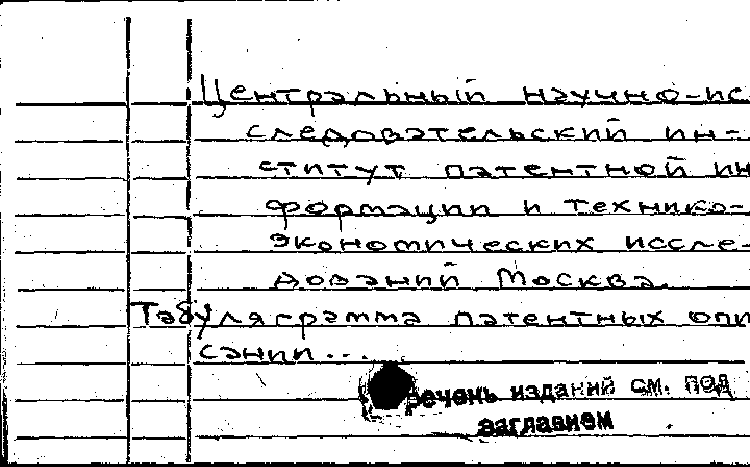 Центральный научно-ис
следовательский ин-
ститут патентной ин
формации и технико-
экономических иссле-
дований Москва.
Табуляграмма патентных опи
саний...
речень изданий см. под
заглавием